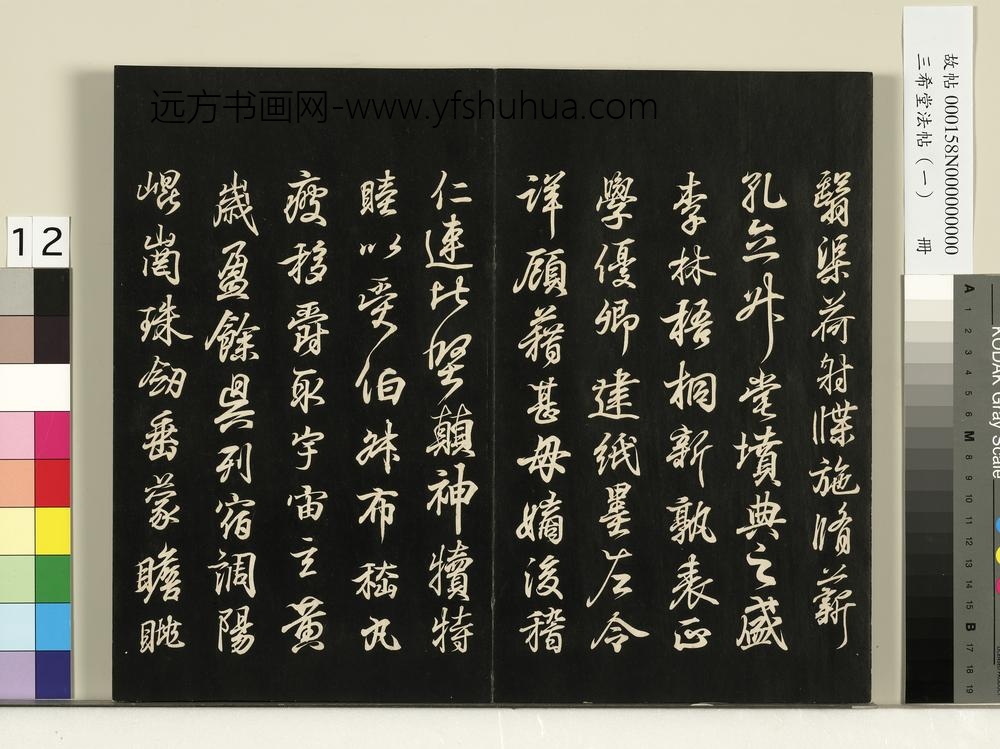 远方书画网-www.yfshuhua.com
故帖 000158N000000000
三希堂法帖（一） 冊
翳渠荷射牒施脩薪
孔立升堂墳典之盛
李林梧桐新孰表正
學優卿建紙墨左令
詳顧藉甚母嫡後稽
仁連比堅顛神犢特
睦以受伯叔布嵇丸
疲移爵取宇宙玄黄
歲盈餘具列宿調陽
崐崗珠劒垂蒙瞻眺
12
KODAK Gray Scale
A 1 2 3 4 5 6 M 8 9 10 11 12 13 14 15 B 17 18 19